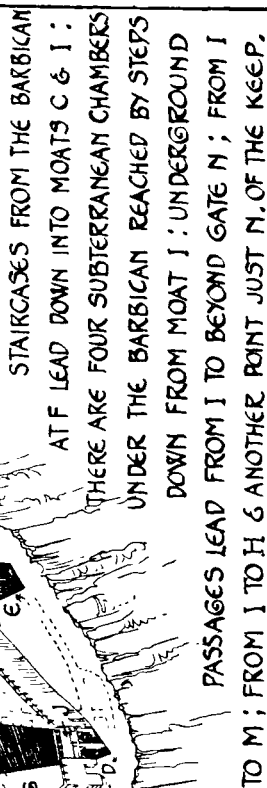 STAIRCASES FROM THE BARBICAN
AT F LEAD DOWN INTO MOATS C & I :
THERE ARE FOUR SUBTERRANEAN CHAMBERS
UNDER THE BARBICAN REACHED BY STEPS
DOWN FROM MOAT I : UNDERGROUND
PASSAGES LEAD FROM I TO BEYOND GATE N ; FROM I
TO M ; FROM I TO H & ANOTHER POINT JUST N. OF THE KEEP.
E
D